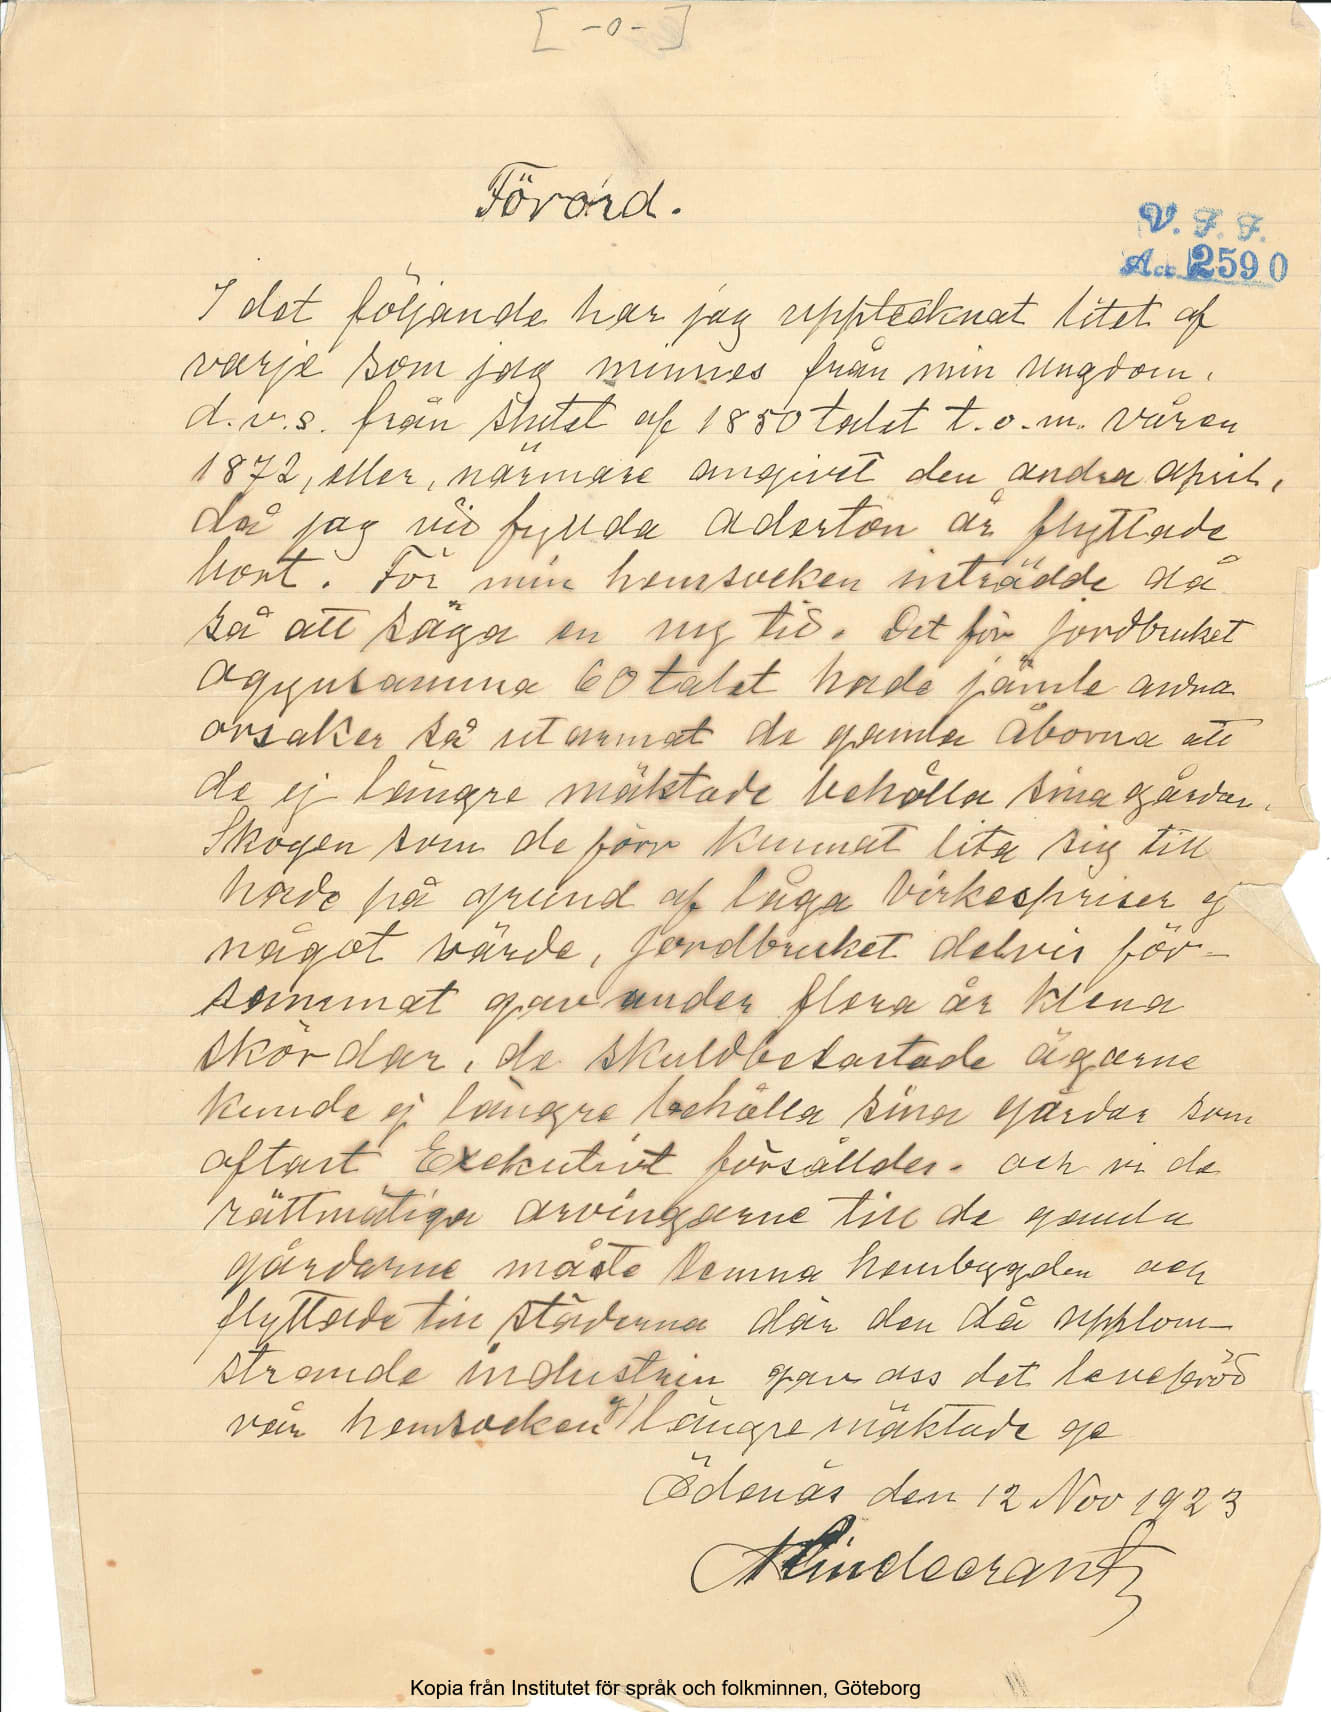 [ -o- ]
Förord.
V. F. F.
Acc. 2590
I det följande har jag upptecknat litet af
varje som jag minnes från min ungdom,
d.v.s. från slutet af 1850 talet t.o.m. våren
1872, eller, närmare angivet den andra april,
då jag vid fyllda aderton år flyttade
bort. För min hemsocken inträdde då
så att säga en ny tid. Det för jordbruket
ogynsamma 60 talet hade jämte andra
orsaker så utarmat de gamla åborna att
de ej längre mäktade behålla sina gårdar.
Skogen som de förr kunnat lita sig till
hade på grund af låga virkespriser ej
något värde, jordbruket delvis för-
summat gav under flera år klena
skördar, de skuldbelastade ägarne
kunde ej längre behålla sina gårdar som
oftast Exekutivt försålldes. och vi de
rättmätiga arvingarne till de gamla
gårdarne måste lemna hembygden och
flyttade till städerna där den då upplom-
strande industrin gav oss det levebröd
vår hemsocken ej längre mäktade ge
Ödenäs den 12 Nov 1923
A Lindecrantz
Kopia från Institutet för språk och folkminnen, Göteborg